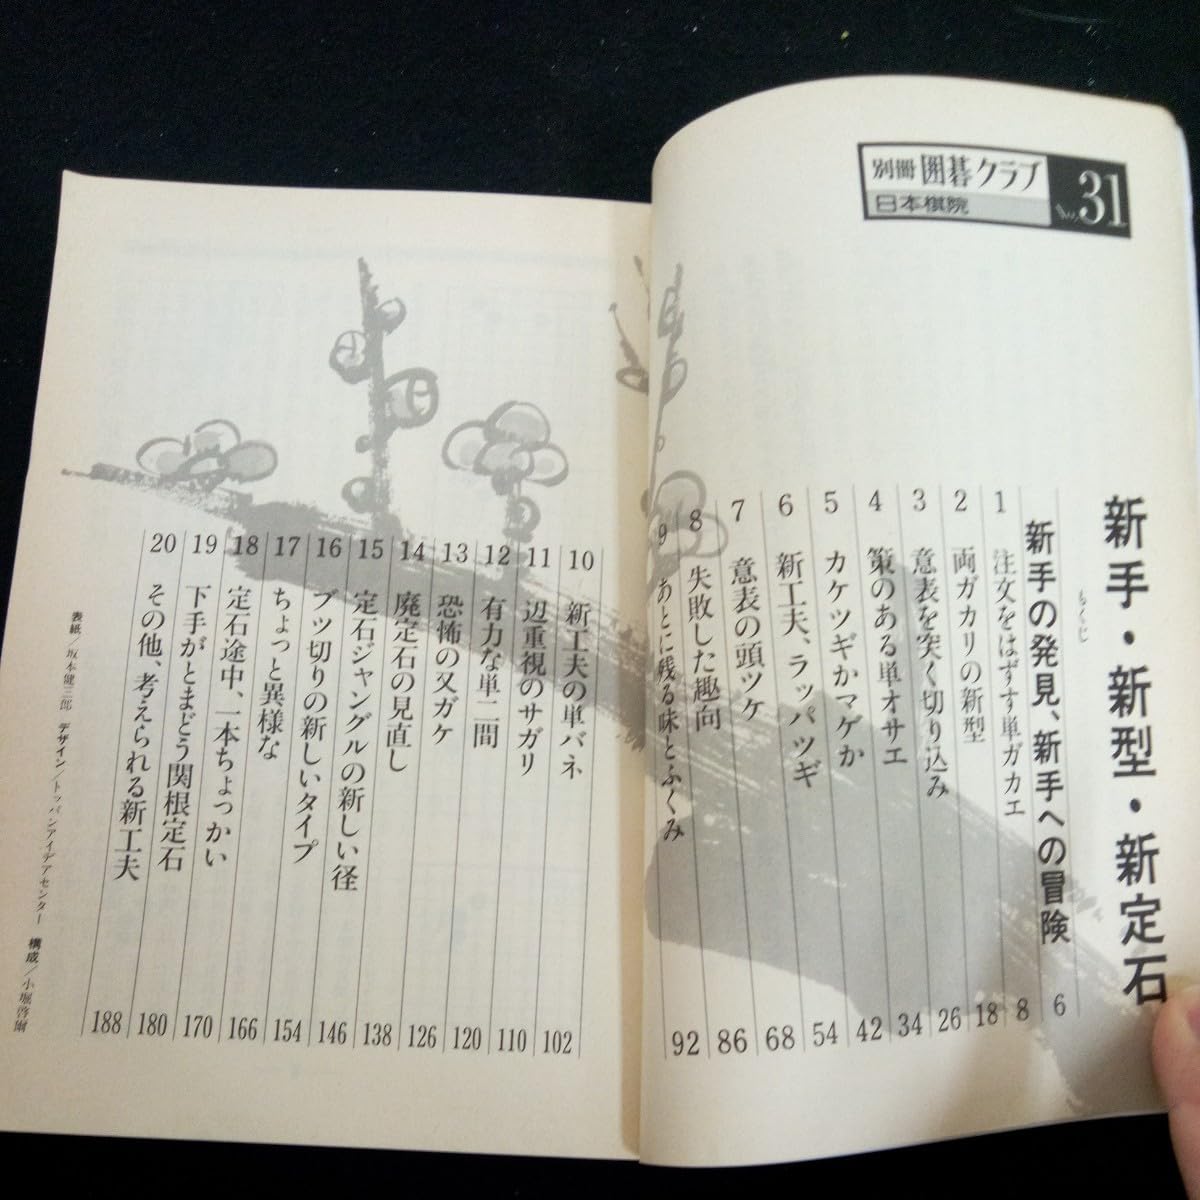 別冊 囲碁クラブ No.31
日本棋院
新手・新型・新定石
もくじ
新手の発見、新手への冒険 6
1 注文をはずす単ガカエ 8
2 両ガカリの新型 18
3 意表を突く切り込み 26
4 策のある単オサエ 34
5 カケツギかマゲか 42
6 新工夫、ラッパツギ 54
7 意表の頭ツケ 68
8 失敗した趣向 86
9 あとに残る味とふくみ 92
10 新工夫の単バネ 102
11 辺重視のサガリ 110
12 有力な単二間 120
13 恐怖の又ガケ 126
14 廃定石の見直し 138
15 定石ジャングルの新しい径 146
16 ブツ切りの新しいタイプ 154
17 ちょっと異様な 166
18 定石途中、一本ちょっかい 170
19 下手がとまどう関根定石 180
20 その他、考えられる新工夫 188
表紙／坂本健三郎 デザイン／トッパンアイデアセンター 構成／小堀啓爾